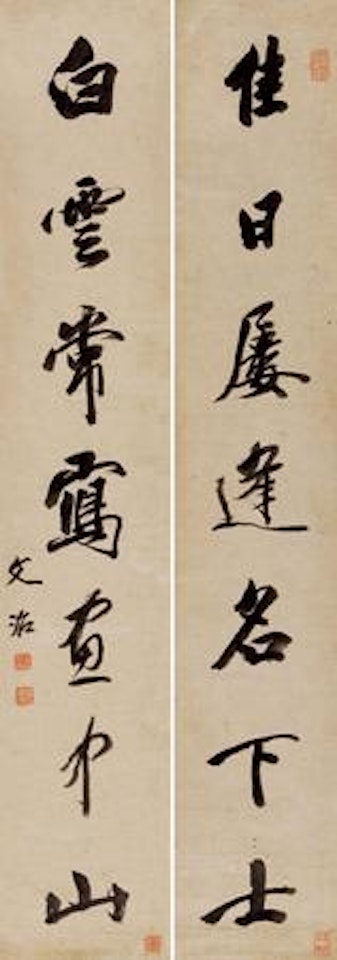 佳日屢逢名下士
白雲常寫畫中山
文治